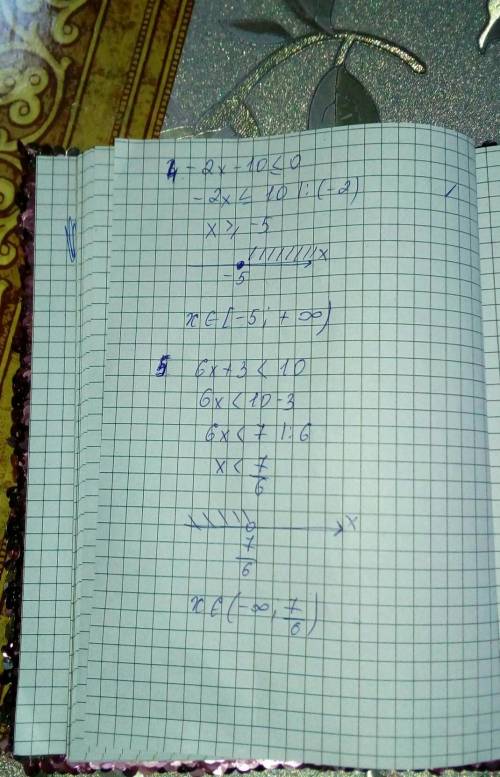 4. -2x - 10 ≤ 0
-2x ≤ 10 |: (-2)
x ≥ -5
x
-5
x ∈ [-5; +∞)
5 6x + 3 < 10
6x < 10 - 3
6x < 7 |: 6
x < 7/6
x
7/6
x ∈ (-∞; 7/6)